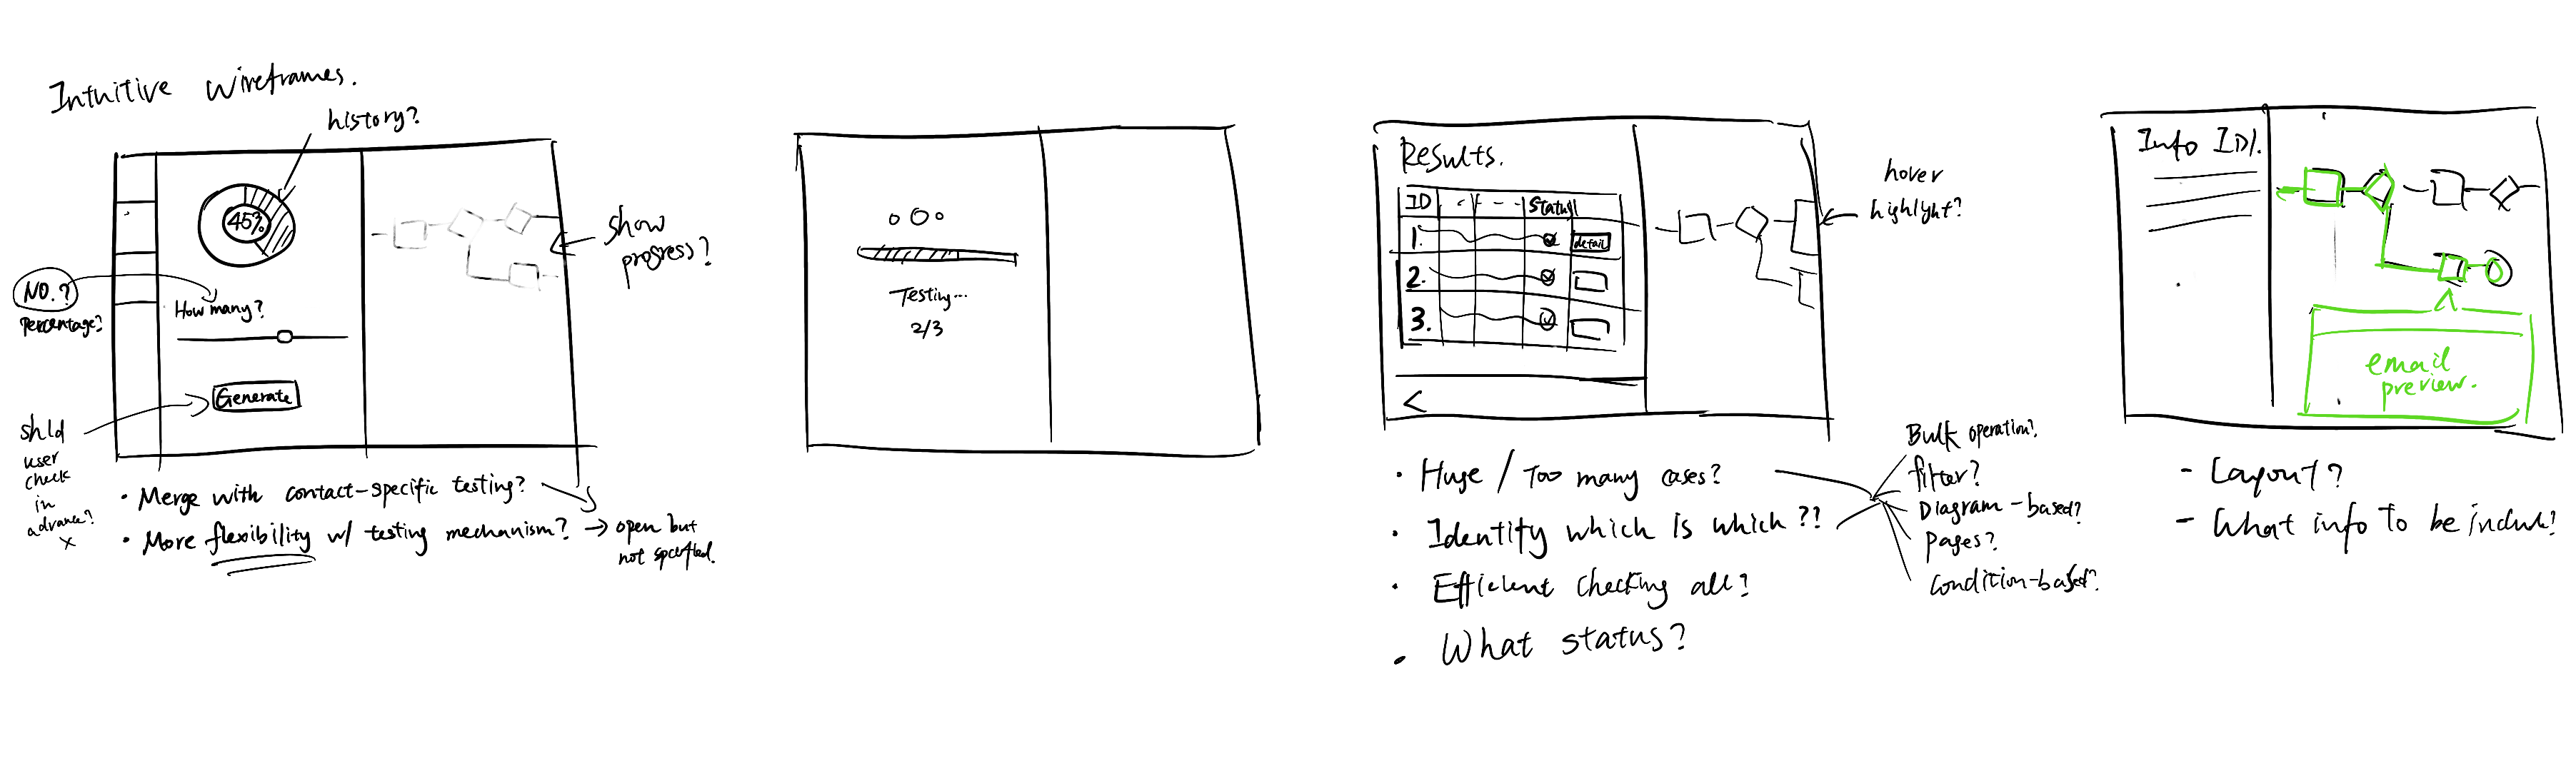 Intuitive wireframes.
history?
45%
show
progress?
NO.?
percentage?
How many?
Generate
shld
user
check
in
advance?
x
• Merge with contact-specific testing?
• More flexibility w/ testing mechanism? → open but
not specified.
Testing...
2/3
Results.
ID - - - Status
1. detail
2.
3.
<
hover
highlight?
• Huge / Too many cases?
• Identify which is which ??
• Efficient checking all?
• What status?
Bulk operation?
filter?
Diagram-based?
pages?
Condition-based?
Info ID1.
email
preview.
- Layout?
- What info to be includ?